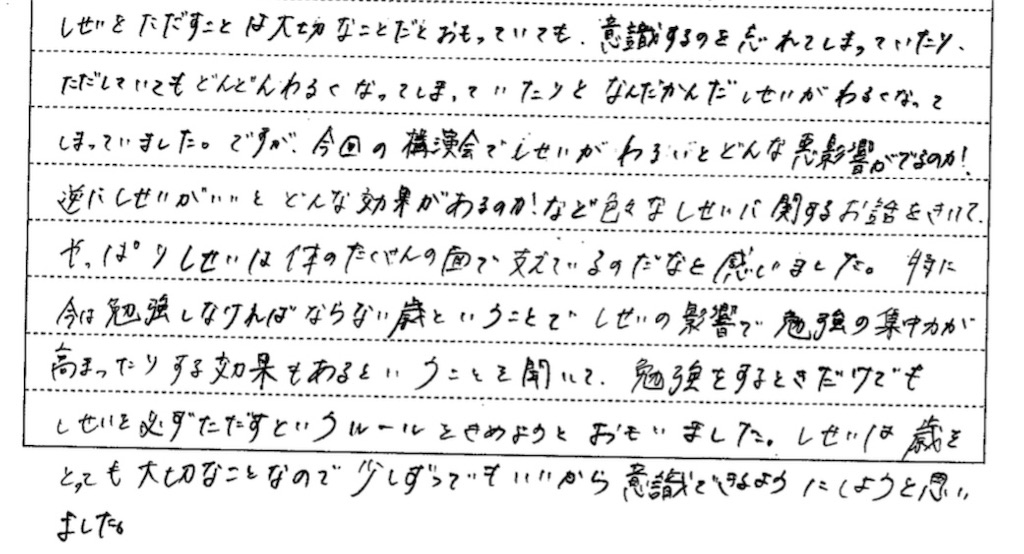 しせいをただすことは大切なことだとおもっていても、意識するのを忘れてしまっていたり、
ただしていてもどんどんわるくなってしまっていたりとなんだかんだしせいがわるくなって
しまっていました。ですが、今回の構演会でしせいがわるいとどんな悪影響がでるのか!
逆にしせいがいいとどんな効果があるのか!など色々なしせいに関するお話をきいて、
やっぱりしせいは体のたくさんの面で支えているのだなと感じました。特に
今は勉強しなければならない歳ということでしせいの影響で勉強の集中力が
高まったりする効果もあるということを聞いて、勉強をするときだけでも
しせいを必ずただすというルールをきめようとおもいました。しせいは歳を
とっても大切なことなので少しずつでもいいから意識できるようにしようと思い
ました。